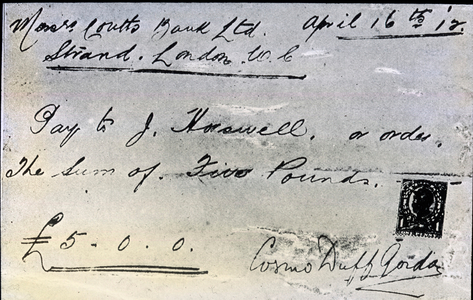 Messrs Coutts Bank Ltd. April 16th '12.
Strand. London W.C
Pay to J. Horswell. or order.
The Sum of. Five Pounds.
£5-0.0.
Cosmo Duff Gordon